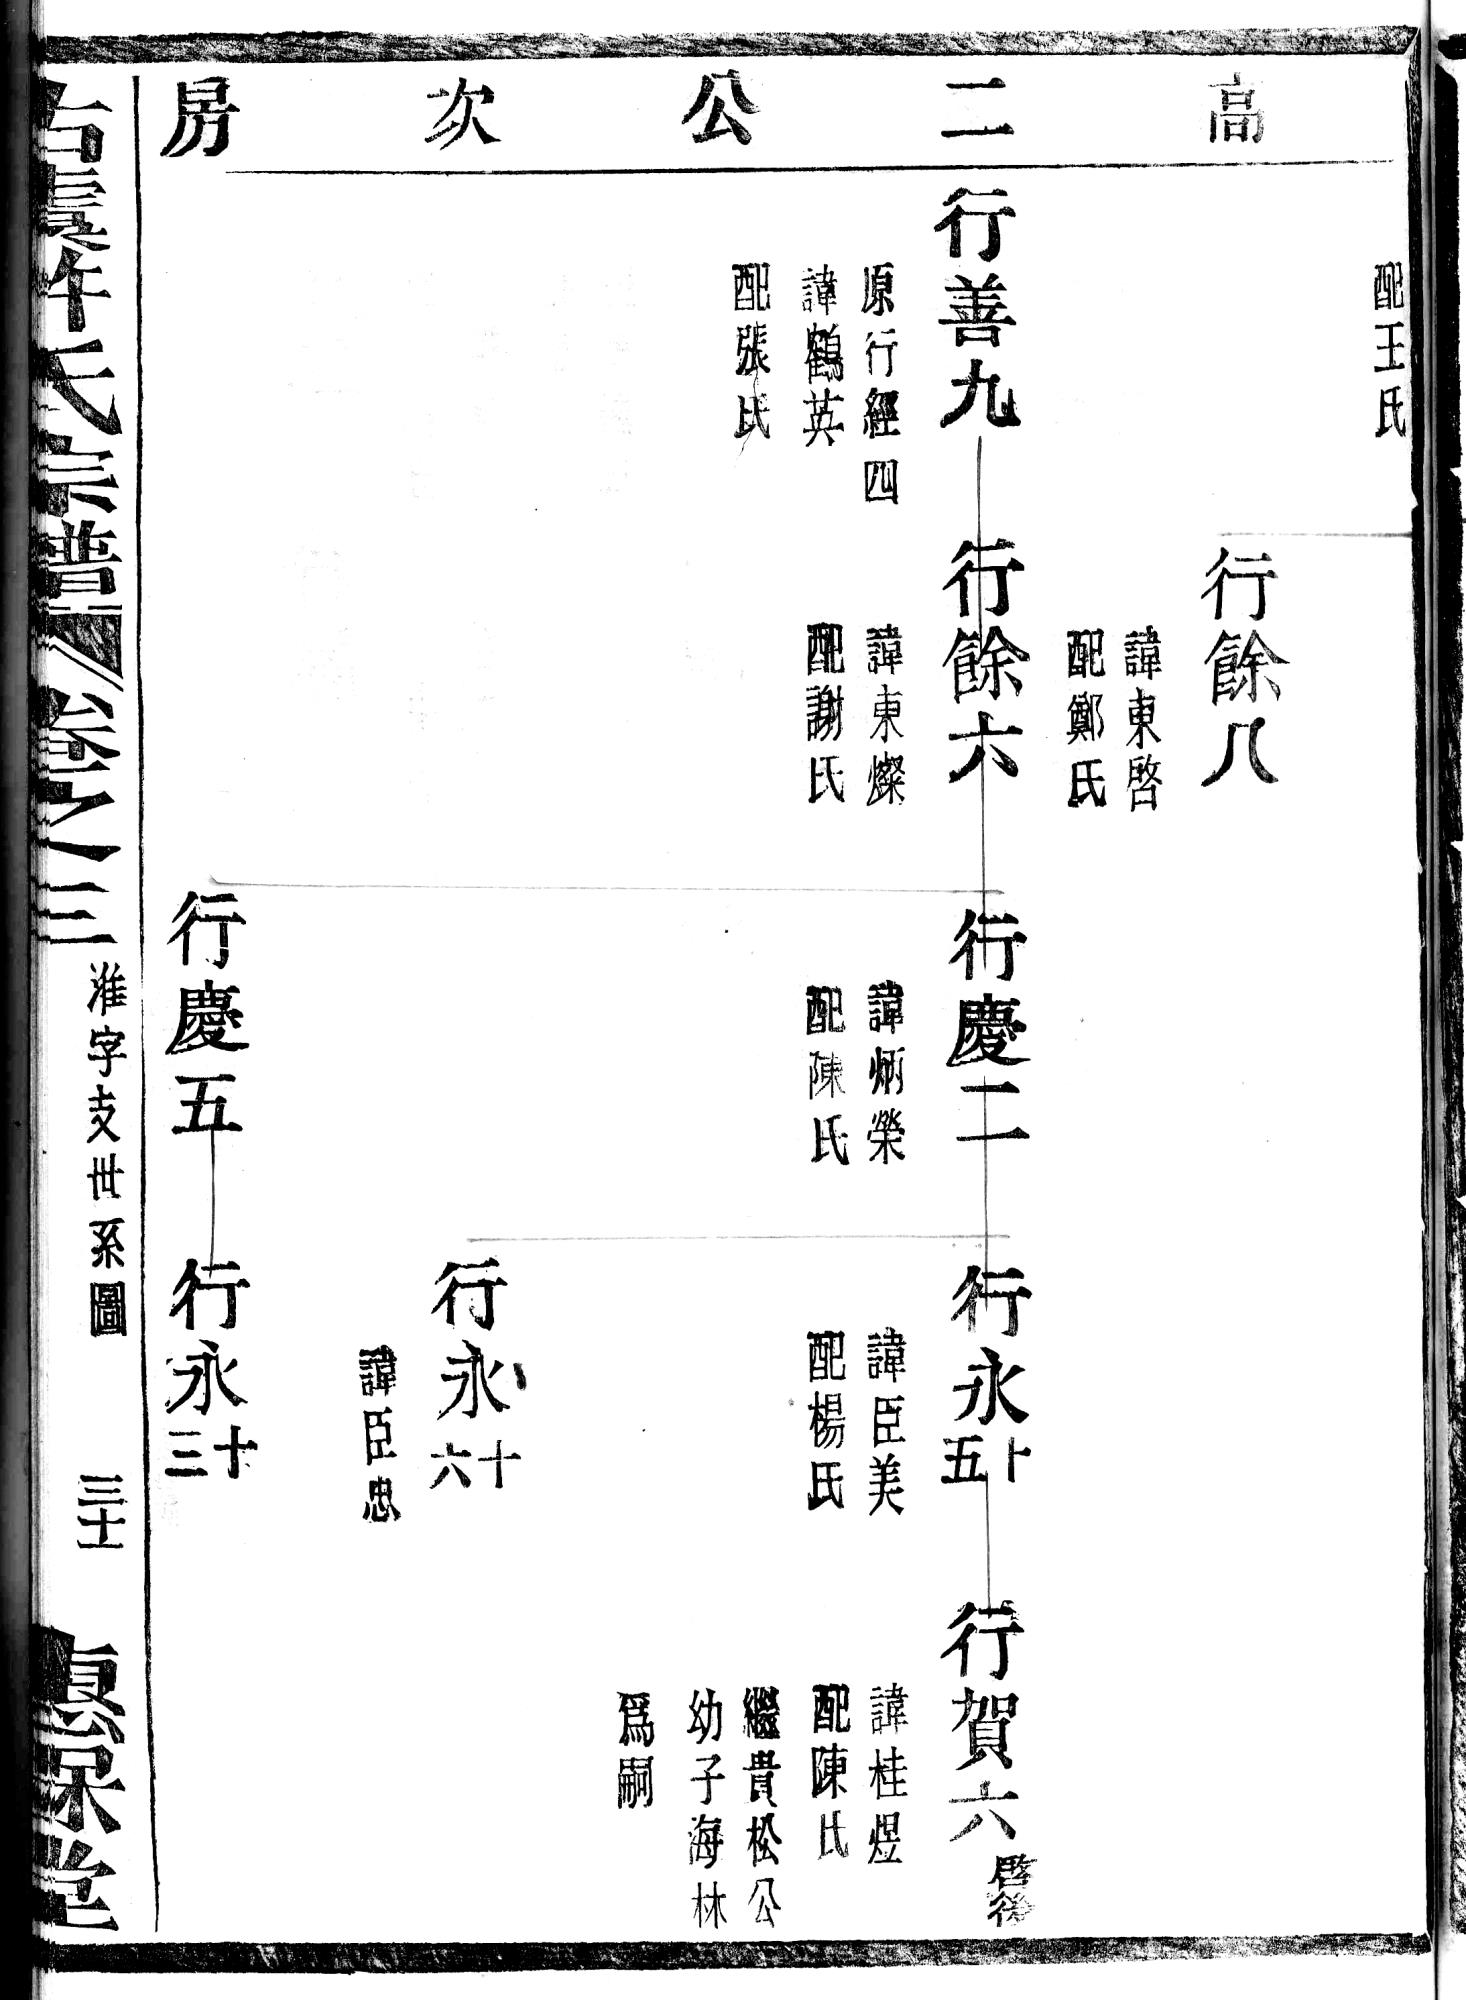 高二公次房
配王氏
行餘八
諱東啓
配鄭氏
行善九
原行經四
諱鶴英
配張氏
行餘六
諱東燦
配謝氏
行慶二
諱炳榮
配陳氏
行永十五
諱臣美
配楊氏
行賀六
啓後
諱桂煜
配陳氏
繼貴松公
幼子海林
爲嗣
行永十六
諱臣忠
行慶五
行永十三
許氏宗譜
卷之三
淮字支世系圖
三十
堂